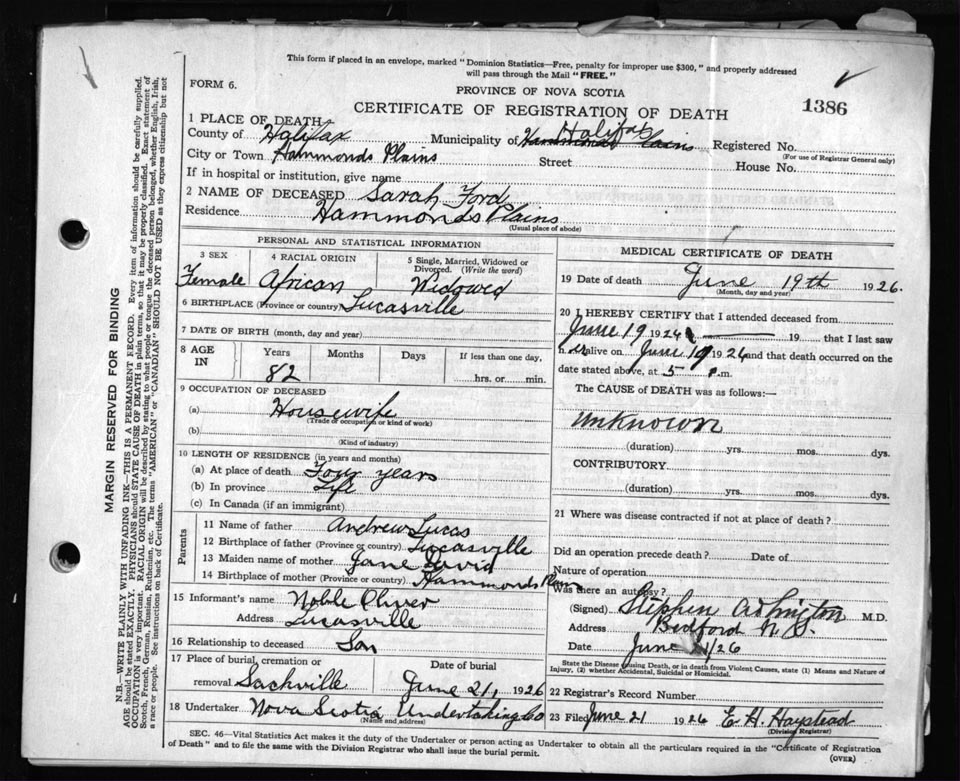 This form if placed in an envelope, marked "Dominion Statistics—Free, penalty for improper use $300," and properly addressed
will pass through the Mail "FREE."
FORM 6.
PROVINCE OF NOVA SCOTIA
CERTIFICATE OF REGISTRATION OF DEATH
1386
1 PLACE OF DEATH
County of Halifax Municipality of Hammonds Plains Halifax Registered No.
(For use of Registrar General only)
City or Town Hammonds Plains Street House No.
If in hospital or institution, give name
2 NAME OF DECEASED Sarah Ford
Residence Hammonds Plains
(Usual place of abode)
PERSONAL AND STATISTICAL INFORMATION
3 SEX 4 RACIAL ORIGIN 5 Single, Married, Widowed or Divorced. (Write the word)
Female African Widowed
6 BIRTHPLACE (Province or country) Lucasville
7 DATE OF BIRTH (month, day and year)
8 AGE IN Years Months Days If less than one day,
82 hrs. or min.
9 OCCUPATION OF DECEASED
(a) Housewife
(Trade or occupation or kind of work)
(b)
(Kind of industry)
10 LENGTH OF RESIDENCE (in years and months)
(a) At place of death Four years
(b) In province Life
(c) In Canada (if an immigrant)
Parents
11 Name of father Andrew Lucas
12 Birthplace of father (Province or country) Lucasville
13 Maiden name of mother Jane David
14 Birthplace of mother (Province or country) Hammonds Plain
15 Informant's name Noble Oliver
Address Lucasville
16 Relationship to deceased Son
17 Place of burial, cremation or removal Sackville Date of burial June 21, 1926
18 Undertaker Nova Scotia Undertaking Co
(Name and address)
MEDICAL CERTIFICATE OF DEATH
19 Date of death June 19th 1926.
(Month, day and year)
20 I HEREBY CERTIFY that I attended deceased from
June 19 1926 19 that I last saw
her alive on June 19 1926 and that death occurred on
date stated above, at 5 P.m.
The CAUSE of DEATH was as follows:—
Unknown
(duration) yrs. mos. dys.
CONTRIBUTORY
(duration) yrs. mos. dys.
21 Where was disease contracted if not at place of death?
Did an operation precede death? Date of
Nature of operation
Was there an autopsy?
(Signed) Stephen M.D.
Address Bedford N.S.
Date June 21/26
State the Disease causing Death, or in death from Violent Causes, state (1) Means and Nature of
Injury, (2) whether Accidental, Suicidal or Homicidal.
22 Registrar's Record Number
23 Filed June 21 1926 E. H. Haystead
(Division Registrar)
SEC. 46—Vital Statistics Act makes it the duty of the Undertaker or person acting as Undertaker to obtain all the particulars required in the "Certificate of Registration
of Death" and to file the same with the Division Registrar who shall issue the burial permit.
(OVER)
MARGIN RESERVED FOR BINDING
N.B.—WRITE PLAINLY WITH UNFADING INK—THIS IS A PERMANENT RECORD. Every item of information should be carefully supplied.
AGE should be stated EXACTLY. PHYSICIANS should STATE CAUSE OF DEATH in plain terms, so that it may be properly classified. Exact statement of
OCCUPATION is very important. RACIAL ORIGIN will be described by stating to what people or tongue the deceased person belonged, whether English, Irish,
Scotch, French, German, Russian, Ruthenian, etc. The terms "AMERICAN" or "CANADIAN" SHOULD NOT BE USED as they express citizenship but not
a race or people. See instructions on back of Certificate.